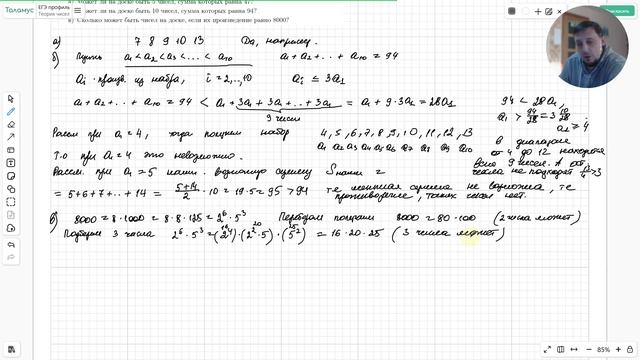 Таломус
ЕГЭ профиль
Теория чисел
а) Может ли на доске быть 5 чисел, сумма которых равна 47?
может ли на доске быть 10 чисел, сумма которых равна 94?
в) Сколько может быть чисел на доске, если их произведение равно 8000?
а) 7 8 9 10 13 Да, например.
б) Пусть a₁ < a₂ < a₃ < ... < a₁₀ a₁ + a₂ + ... + a₁₀ = 94
aᵢ - произв. из набора, i = 2,..,10 aᵢ ≤ 3a₁
a₁ + a₂ + ... + a₁₀ = 94 < a₁ + 3a₁ + 3a₁ + .. + 3a₁ = a₁ + 9·3a₁ = 28a₁
9 чисел
94 < 28a₁,
a₁ > 94/28 = 3 10/28
a₁ ≥ 4
Рассм при a₁ = 4, тогда получим набор 4, 5, 6, 7, 8, 9, 10, 11, 12, 13
a₁ a₂ a₃ a₄ a₅ a₆ a₇ a₈ a₉ a₁₀
в диапазоне
от 4 до 12 находится
всего 9 чисел. А от.
числа не подходят
Т.о при a₁ = 4 это невозможно.
Рассм. при a₁ = 5 наим. возможную сумму S наим =
= 5+6+7+...+14 = (5+14)/2 · 10 = 19·5 = 95 > 94 т.е минимальная сумма не возможна, т.е
противоречие, таких чисел нет.
в) 8000 = 8·1000 = 8·8·125 = 2⁶·5³ Перебором получим 8000 = 80·100 (2 числа может)
Подберем 3 числа 2⁶·5³ = (2⁴)·(2²·5)·(5²) = 16·20·25 (3 числа может)
16 20 25
85%